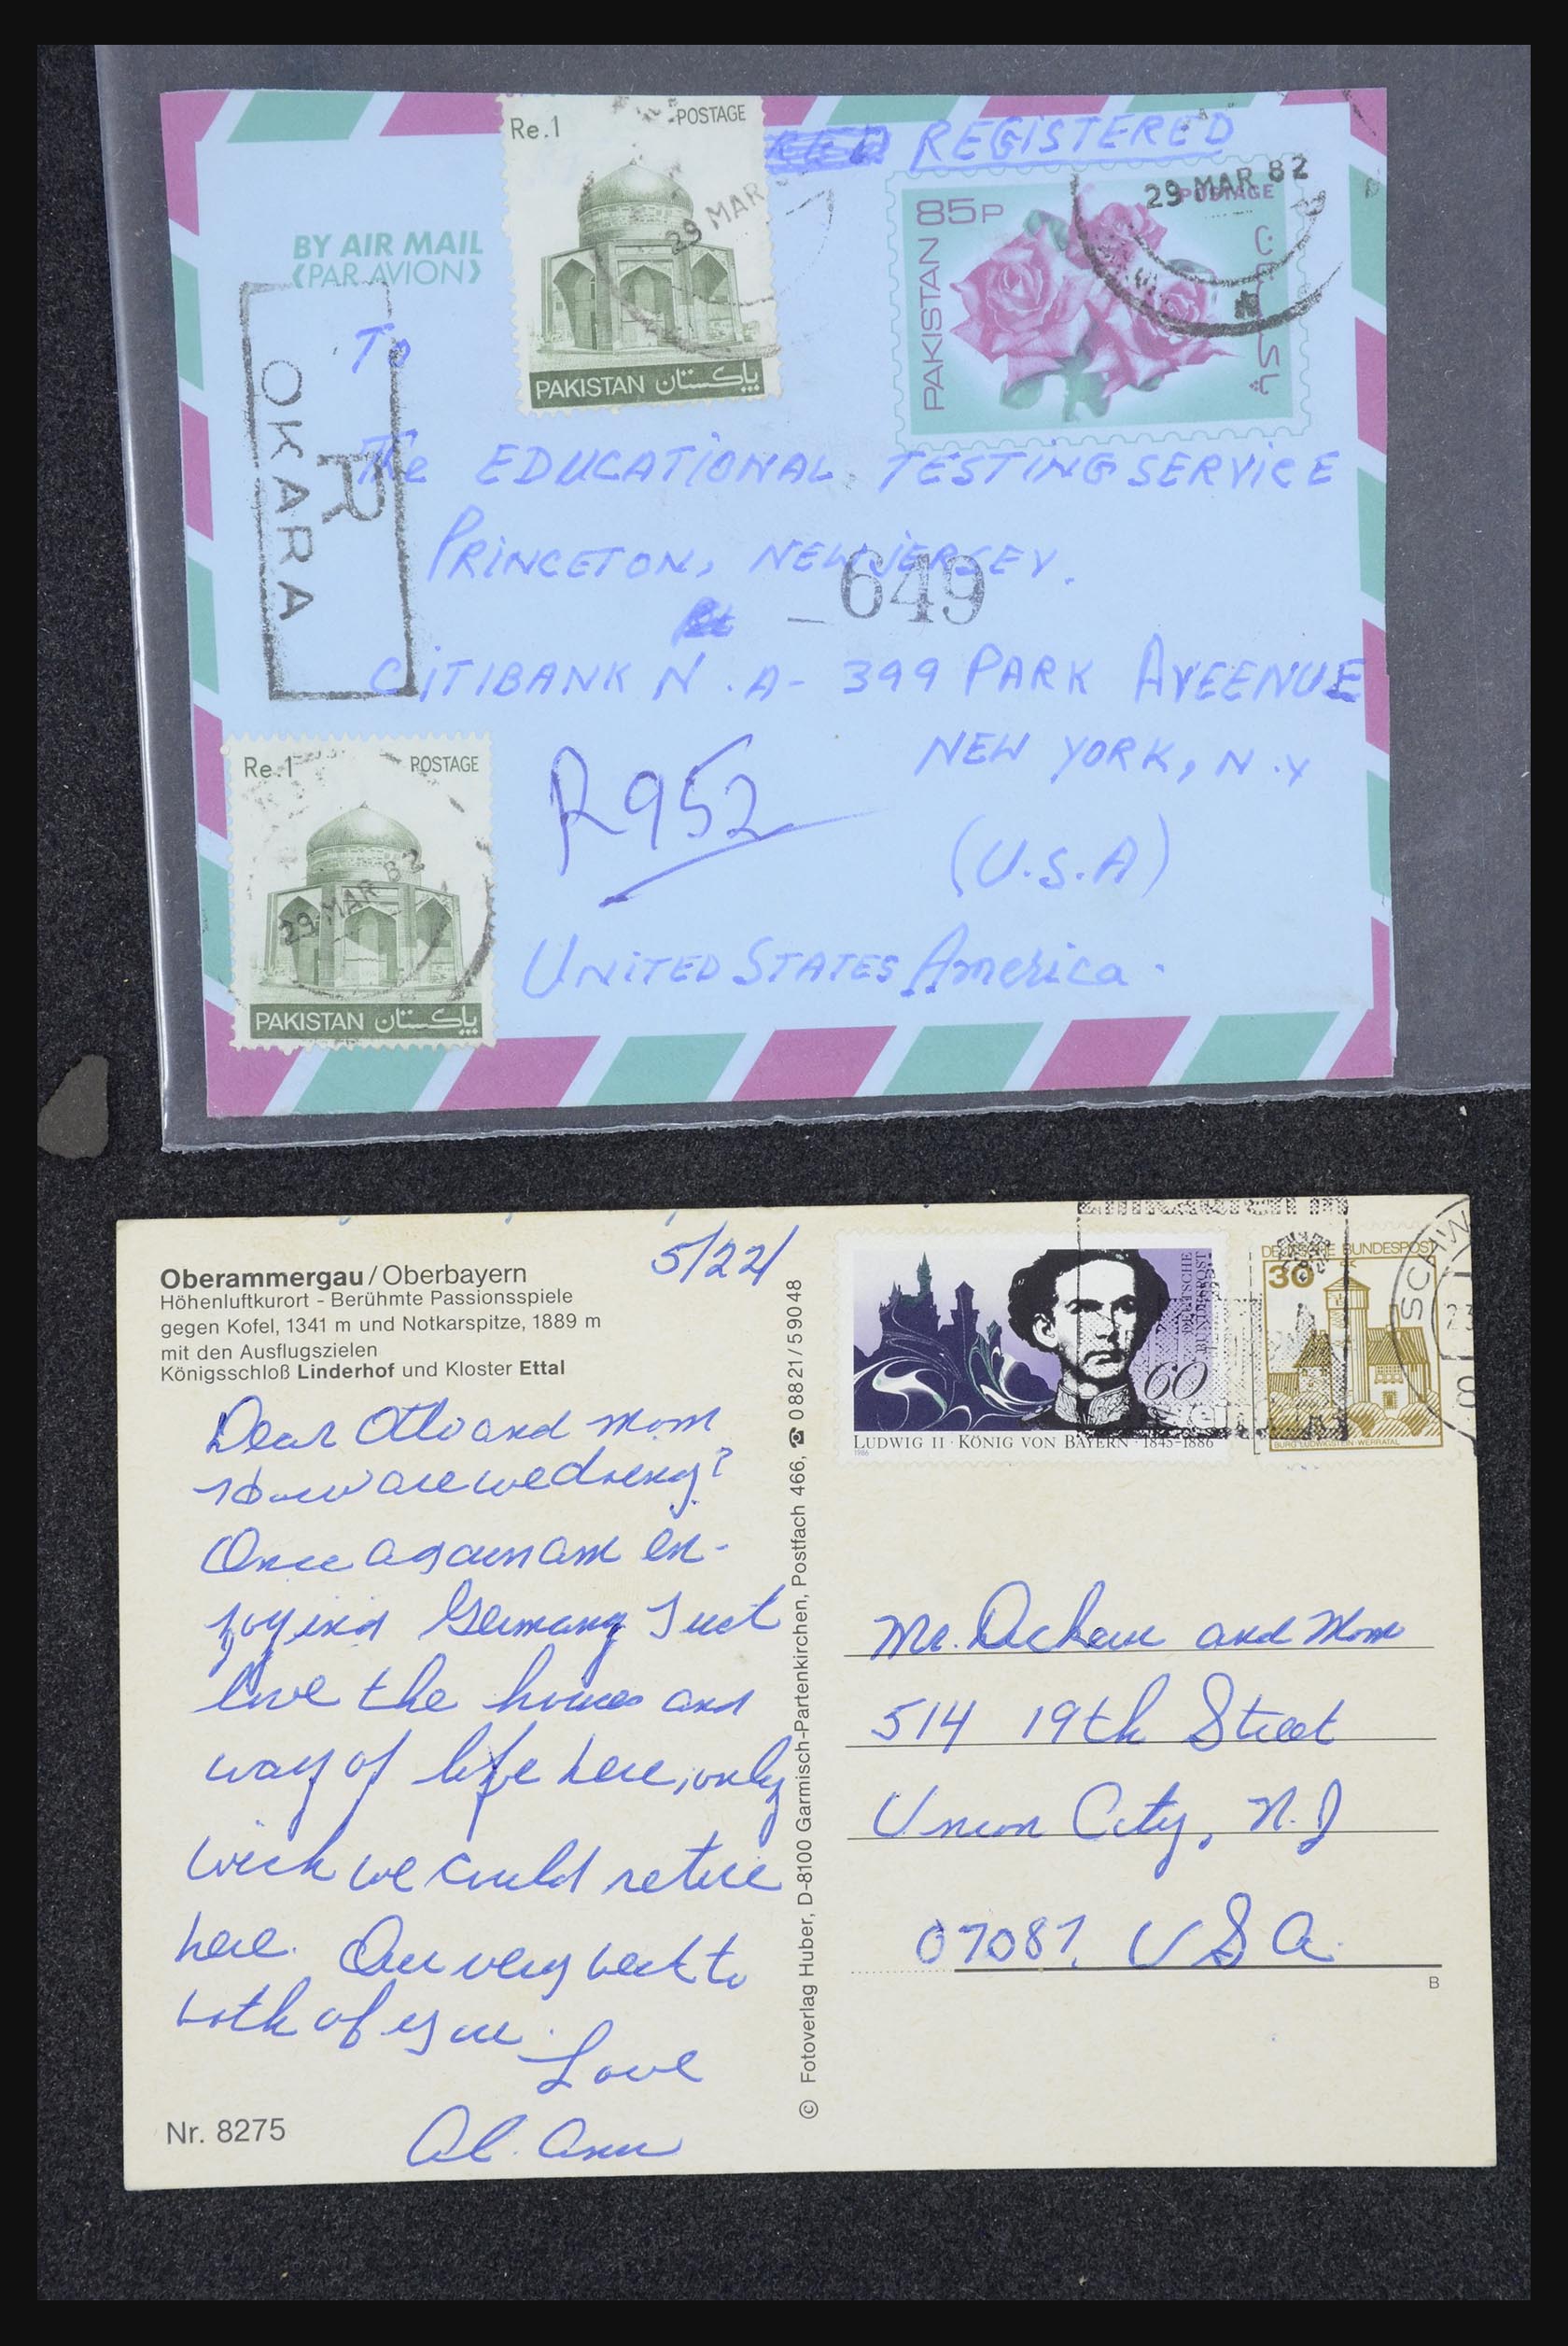 Re.1 POSTAGE
REGISTERED
29 MAR
29 MAR 82
85P POSTAGE
PAKISTAN
پاکستان
BY AIR MAIL
(PAR AVION)
PAKISTAN پاکستان
R
OKARA
To
The EDUCATIONAL TESTING SERVICE
PRINCETON, NEW JERSEY.
649
CITIBANK N.A- 399 PARK AVEENUE
NEW YORK, N.Y
R952
(U.S.A)
UNITED STATES America.
Re.1 POSTAGE
29 MAR 82
PAKISTAN پاکستان
5/22/
Oberammergau/Oberbayern
Höhenluftkurort - Berühmte Passionsspiele
gegen Kofel, 1341 m und Notkarspitze, 1889 m
mit den Ausflugszielen
Königsschloß Linderhof und Kloster Ettal
Dear Otto and Mom
How are we doing?
Once again am en-
joying Germany Just
love the homes and
way of life here, only
wish we could retire
here. Our very best to
both of you.
Love
Al. Ann
Nr. 8275
© Fotoverlag Huber, D-8100 Garmisch-Partenkirchen, Postfach 466, ☎ 08821/59048
DEUTSCHE BUNDESPOST
60
LUDWIG II · KÖNIG VON BAYERN · 1845-1886
1986
DEUTSCHE BUNDESPOST
30
BURG LUDWIGSTEIN · WERRATAL
SCHW
Mr. and Mom
514 19th Street
Union City, N.J
07087. USA.
B